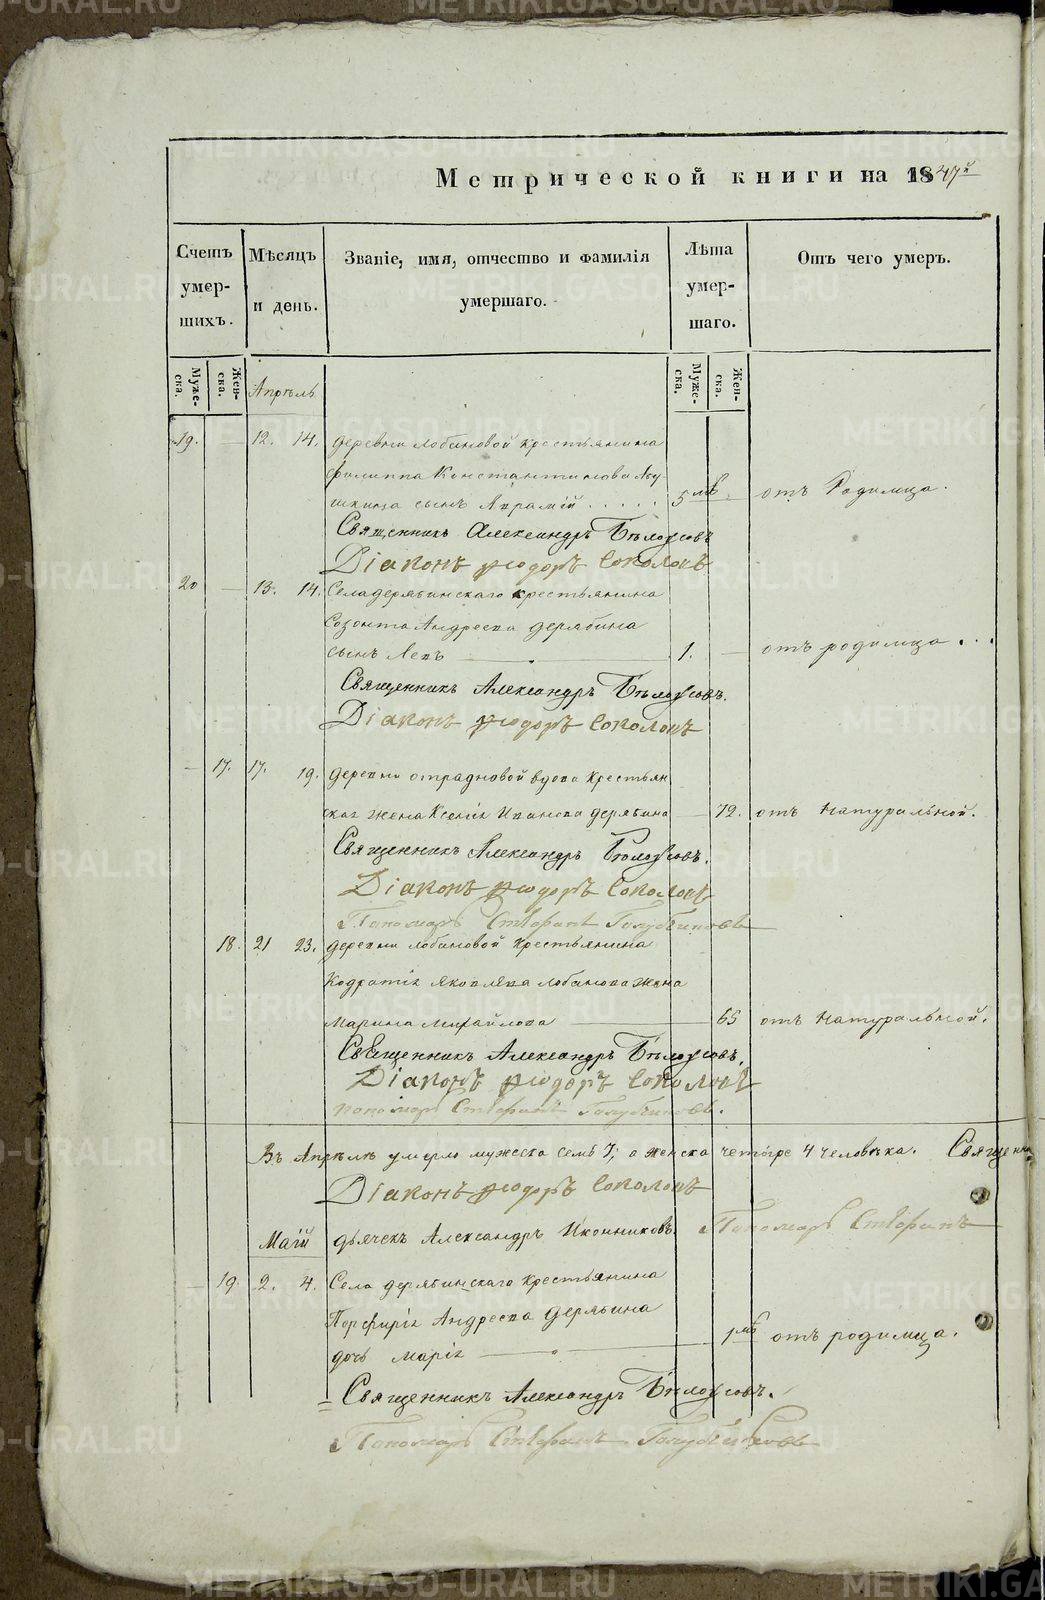 Метрической книги на 1847й
Счетъ умер-шихъ.
Мѣсяцъ и день.
Званіе, имя, отчество и фамилія умершаго.
Лѣта умер-шаго.
Отъ чего умеръ.
Муже-ска.
Жен-ска.
Муже-ска.
Жен-ска.
Апрѣль
19. — 12. 14. деревни лобановой крестьянина
филиппа Константинова
сынъ Авраамій . . . . . 5 мѣ. отъ Родимца.
Священникъ Александръ Бѣлоусовъ
Діаконъ Ѳеодоръ Соколовъ
20 — 13. 14. Села дерябинскаго крестьянина
Созонта Андреева дерябина
сынъ Левъ — 1. — отъ родимца . . .
Священникъ Александръ Бѣлоусовъ.
Діаконъ Ѳеодоръ Соколовъ
— 17. 17. 19. деревни отрадновой вдова крестьян
ская жена Ксенія Иванова дерябина — 72. отъ натуральной.
Священникъ Александръ Бѣлоусовъ.
Діаконъ Ѳеодоръ Соколовъ
Пономарь Стефанъ Голубчиковъ
18. 21 23. деревни лобановой крестьянина
Кодратія яковлева лобанова жена
Марина михайлова — 65 отъ натуральной.
Священникъ Александръ Бѣлоусовъ.
Діаконъ Ѳеодоръ Соколовъ
пономарь Стефанъ Голубчиковъ.
Въ Апрѣлѣ умерло мужеска семь 7, а женска четыре 4 человѣка. Священни
Діаконъ Ѳеодоръ Соколовъ
Маій дьячекъ Александръ Иконниковъ. Пономарь Стефанъ
— 19. 2. 4. Села дерябинскаго крестьянина
Порфирія Андреева дерябина
дочь марія — 1 мѣ отъ родимца.
Священникъ Александръ Бѣлоусовъ.
Пономарь Стефанъ Голубчиковъ
METRIKI.GASO-URAL.RU